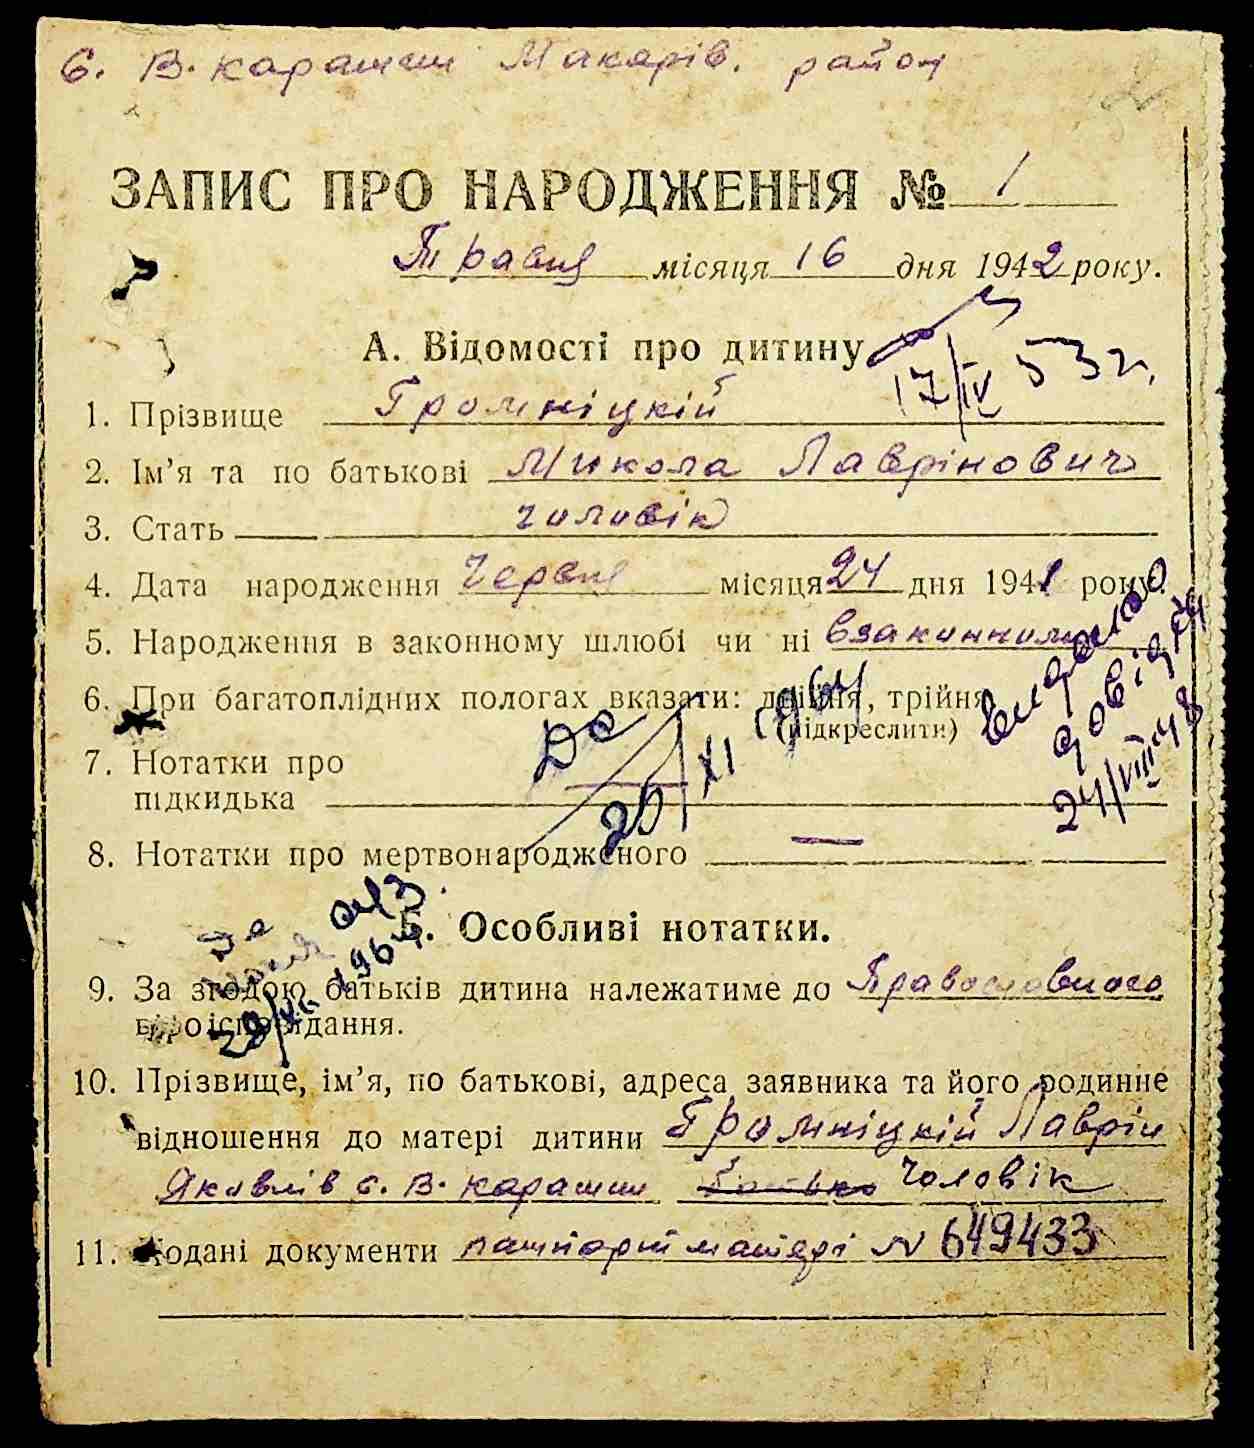 с. В. Карашин Макарів. район
ЗАПИС ПРО НАРОДЖЕННЯ № 1
Травня місяця 16 дня 1942 року.
А. Відомості про дитину
17/IV 53 г.
1. Прізвище Громніцкій
2. Ім’я та по батькові Микола Лаврінович
3. Стать чоловік
4. Дата народження Червня місяця 24 дня 1941 року.
5. Народження в законному шлюбі чи ні взаконному
видано довідку 24/VIII 48
6. При багатоплідних пологах вказати: двійня, трійня
(підкреслити)
7. Нотатки про
підкидька
26/XI 1964
8. Нотатки про мертвонародженого —
Б. Особливі нотатки.
9. За згодою батьків дитина належатиме до Православного
віросповідання.
10. Прізвище, ім’я, по батькові, адреса заявника та його родинне
відношення до матері дитини Громніцкій Лаврін
Яковлів с. В. Карашин батько Чоловік
11. Подані документи пашпорт матері N 649433